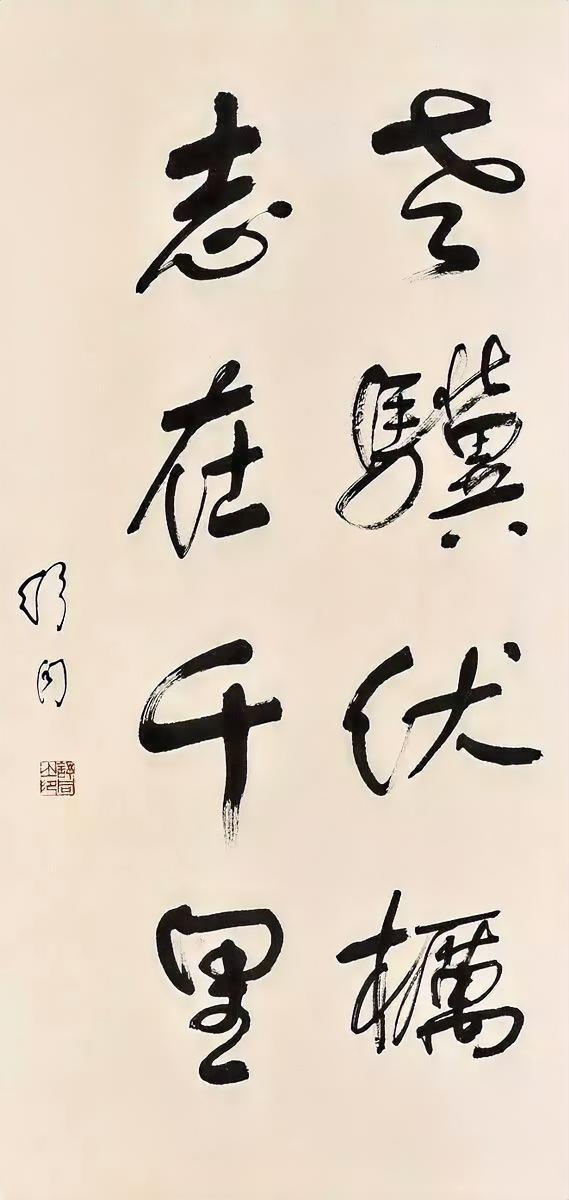 老驥伏櫪
志在千里
舒同
舒同之印